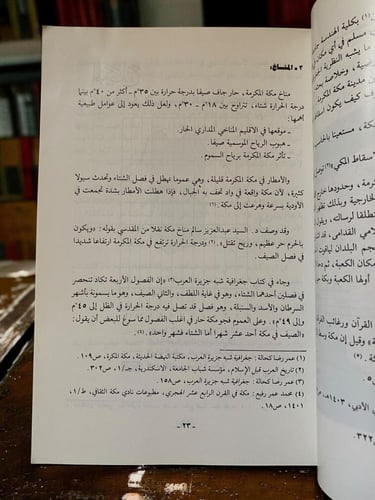 ٢ - المناخ:
مناخ مكة المكرمة، حار جاف صيفا بدرجة حرارة بين ٣٥م - أكثر من ٤٠م بينما
درجة الحرارة شتاء، تتراوح بين ١٨م - ٣٠م، ولعل ذلك يعود إلى عوامل طبيعية
أهمها:
- موقعها في الاقليم المناخي المداري الحار.
- هبوب الرياح الموسمية صيفا.
- تأثر مكة المكرمة برياح السموم.
والأمطار في مكة المكرمة قليلة، وهي عموما تهطل في فصل الشتاء وتحدث سيولا
كثيرة، لأن مكة واقعة في واد تحف به الجبال، فإذا هطلت الأمطار بشدة تجمعت في
الأودية بسرعة وهرعت إلى مكة: (٢)
وقد وصف د. السيد عبدالعزيز سالم مناخ مكة نقلا من المقدسي بقوله: «ويكون
بالحرم حر عظيم، وريح تقتل». ودرجة الحرارة ترتفع في مكة المكرمة ارتفاعا شديدا
في فصل الصيف.
وجاء في كتاب جغرافية شبه جزيرة العرب(٣) «إن الفصول الأربعة تكاد تنحصر
في فصلين أحدهما الشتاء، وهو في غاية اللطف، والثاني الصيف، وهو ما يسمونه بأشهر
السرطان والأسد والسنبلة، وهو فصل قد تصل فيه درجة الحرارة في الظل إلى ٤٥م
وإلى ٤٩م». وعلى العموم فجو مكة حار في اغلب الفصول مما سوغ للبعض أن يقول:
«الصيف في مكة أحد عشر شهرا أما الشتاء فشهر واحد». (٤)
(١) عمر رضا كحالة: جغرافية شبه جزيرة العرب، مكتبة النهضة الحديثة، مكة المكرمة، ص١٠٩.
(٢) تاريخ العرب قبل الإسلام، مؤسسة شباب الجامعة، الاسكندرية، جـ١، ص٣٠٢.
(٣) عمر رضا كحالة: جغرافية شبه جزيرة العرب، ص١٥٨.
(٤) محمد عمر رفيع: مكة في القرن الرابع عشر الهجري، مطبوعات نادي مكة الثقافي، ط/١،
١٤٠١، ص١٨.
- ٢٣ -